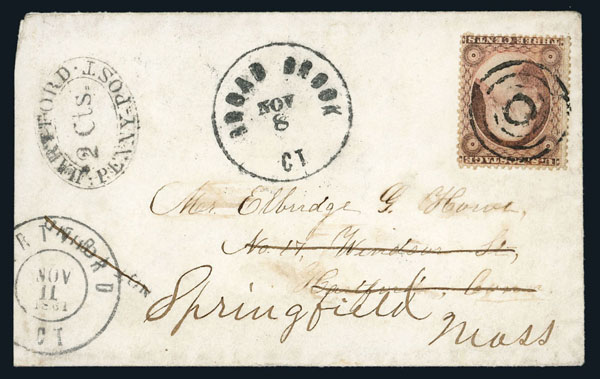 HARTFORD. PENNY-POST.
2 Cts.
BROAD BROOK
NOV
8
CT
THREE CENTS
POSTAGE
Mr. Elbridge G. Howe,
No. 17, Windsor St,
Hartford, Conn
Springfield
Mass
RTFORD
NOV
11
1861
CT